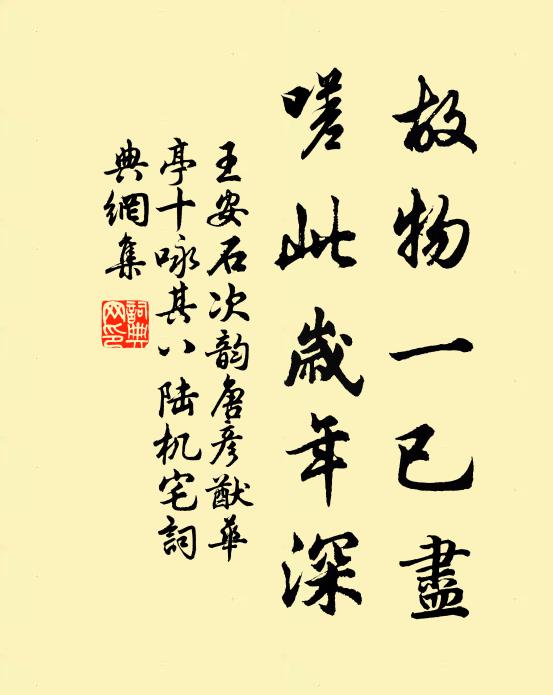 故物一已盡
嗟此歲年深
王安石次韵唐彦猷華
亭十咏其八陆机宅詞
典網集
詞典
网印